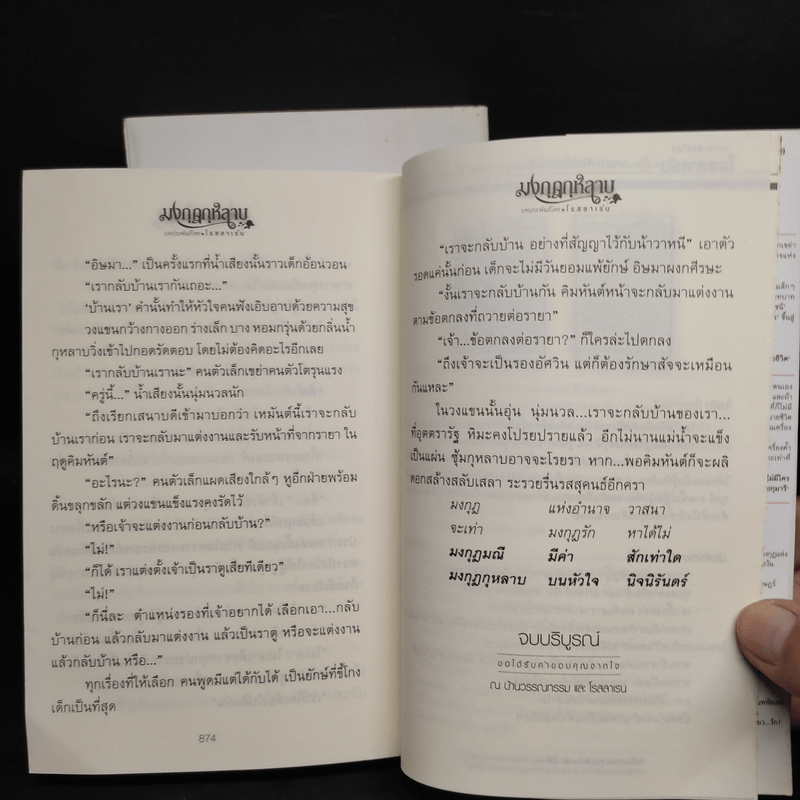 มงกุฎกุหลาบ
บทประพันธ์โดย โรสลาเรน
“อิษมา...” เป็นครั้งแรกที่น้ำเสียงนั้นราวเด็กอ้อนวอน
“เรากลับบ้านเรากันเถอะ...”
‘บ้านเรา’ คำนั้นทำให้หัวใจคนฟังเอิบอาบด้วยความสุข
วงแขนกว้างกางออก ร่างเล็ก บาง หอมกรุ่นด้วยกลิ่นน้ำ
กุหลาบวิ่งเข้าไปกอดรัดตอบ โดยไม่ต้องคิดอะไรอีกเลย
“เรากลับบ้านเรานะ” คนตัวเล็กเขย่าคนตัวโตรุนแรง
“ครู่นี้...” น้ำเสียงนั้นนุ่มนวลนัก
“ถึงเรียกเสนาบดีเข้ามาบอกว่า เหมันต์นี้เราจะกลับ
บ้านเราก่อน เราจะกลับมาแต่งงานและรับหน้าที่จากรายา ใน
ฤดูคิมหันต์”
“อะไรนะ?” คนตัวเล็กแผดเสียงใกล้ๆ หูอีกฝ่ายพร้อม
ดิ้นขลุกขลัก แต่วงแขนแข็งแรงคงรัดไว้
“หรือเจ้าจะแต่งงานก่อนกลับบ้าน?”
“ไม่!”
“ก็ได้ เราแต่งตั้งเจ้าเป็นราตูเสียทีเดียว”
“ไม่!”
“ก็นี่ละ ตำแหน่งรองที่เจ้าอยากได้ เลือกเอา...กลับ
บ้านก่อน แล้วกลับมาแต่งงาน แล้วเป็นราตู หรือจะแต่งงาน
แล้วกลับบ้าน หรือ...”
ทุกเรื่องที่ให้เลือก คนพูดมีแต่ได้กับได้ เป็นยักษ์ที่ขี้โกง
เด็กเป็นที่สุด
874
มงกุฎกุหลาบ
บทประพันธ์โดย โรสลาเรน
“เราจะกลับบ้าน อย่างที่สัญญาไว้กับน้าวาหนี” เอาตัว
รอดแค่นั้นก่อน เด็กจะไม่มีวันยอมแพ้ยักษ์ อิษมาผงกศีรษะ
“งั้นเราจะกลับบ้านกัน คิมหันต์หน้าจะกลับมาแต่งงาน
ตามข้อตกลงที่ถวายต่อรายา”
“เจ้า...ข้อตกลงต่อรายา?” ก็ใครล่ะไปตกลง
“ถึงเจ้าจะเป็นรองอัศวิน แต่ก็ต้องรักษาสัจจะเหมือน
กันแหละ”
ในวงแขนนั้นอุ่น นุ่มนวล...เราจะกลับบ้านของเรา...
ที่อุตตรารัฐ หิมะคงโปรยปรายแล้ว อีกไม่นานแม่น้ำจะแข็ง
เป็นแผ่น ซุ้มกุหลาบอาจจะโรยรา หาก...พอคิมหันต์ก็จะผลิ
ดอกสล้างสลับเสลา ระรวยรื่นรสสุคนธ์อีกครา
มงกุฎ แห่งอำนาจ วาสนา
จะเท่า มงกุฎรัก หาได้ไม่
มงกุฎมณี มีค่า สักเท่าใด
มงกุฎกุหลาบ บนหัวใจ นิจนิรันดร์
จบบริบูรณ์
ขอได้รับคำขอบคุณจากใจ
ณ บ้านวรรณกรรม และ โรสลาเรน